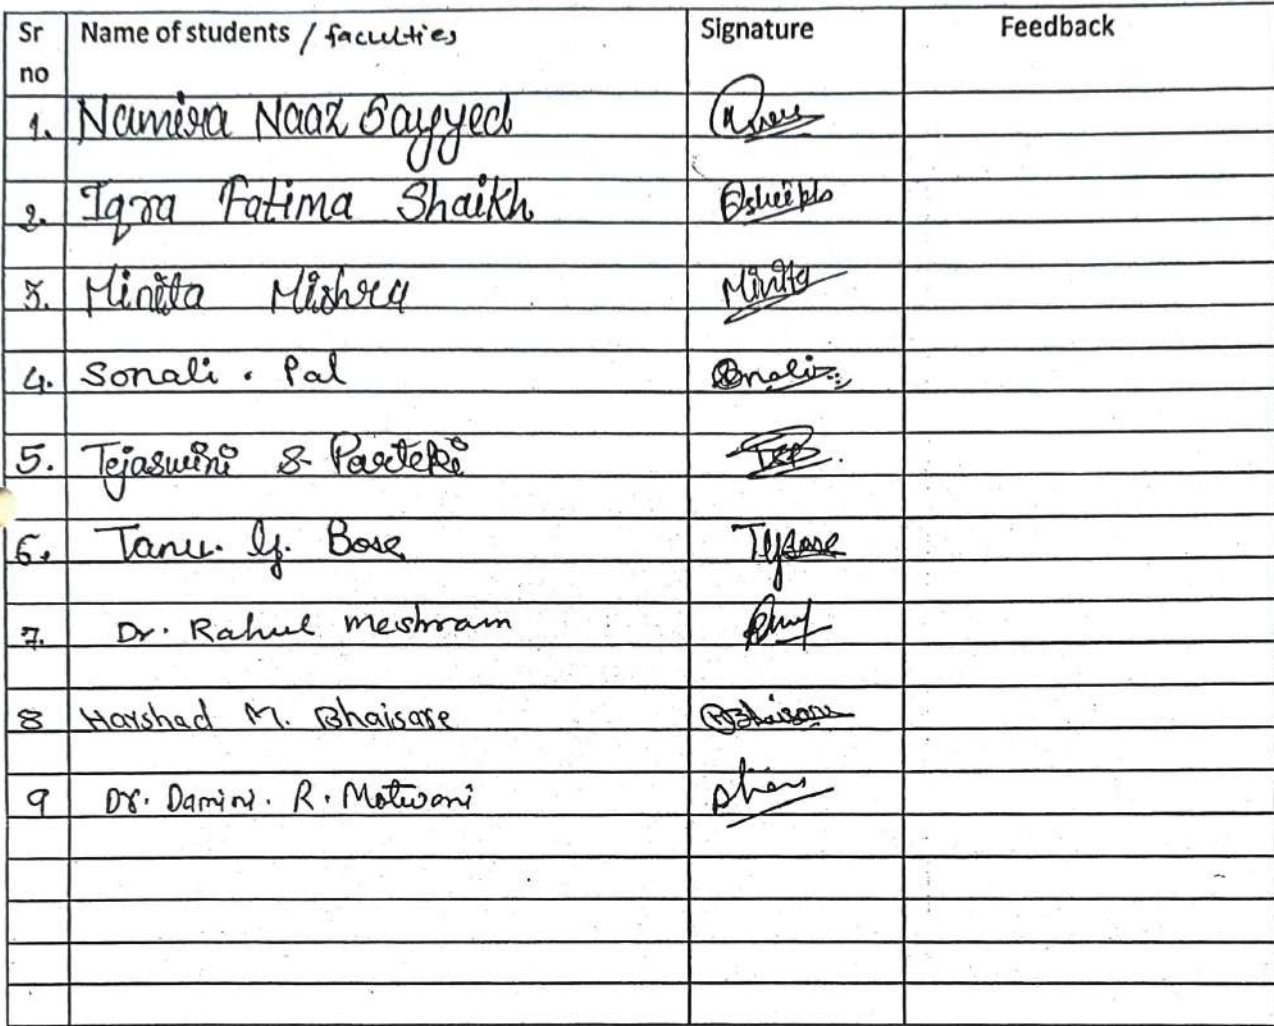 Sr no Name of students / faculties Signature Feedback
1. Namira Naaz Sayyed
2. Iqra Fatima Shaikh
3. Minita Mishra Minita
4. Sonali . Pal
5. Tejaswini S Parteki
6. Tanu. G. Bose
7. Dr. Rahul meshram
8 Harshad M. Bhaisare
9 Dr. Damini. R. Motwani